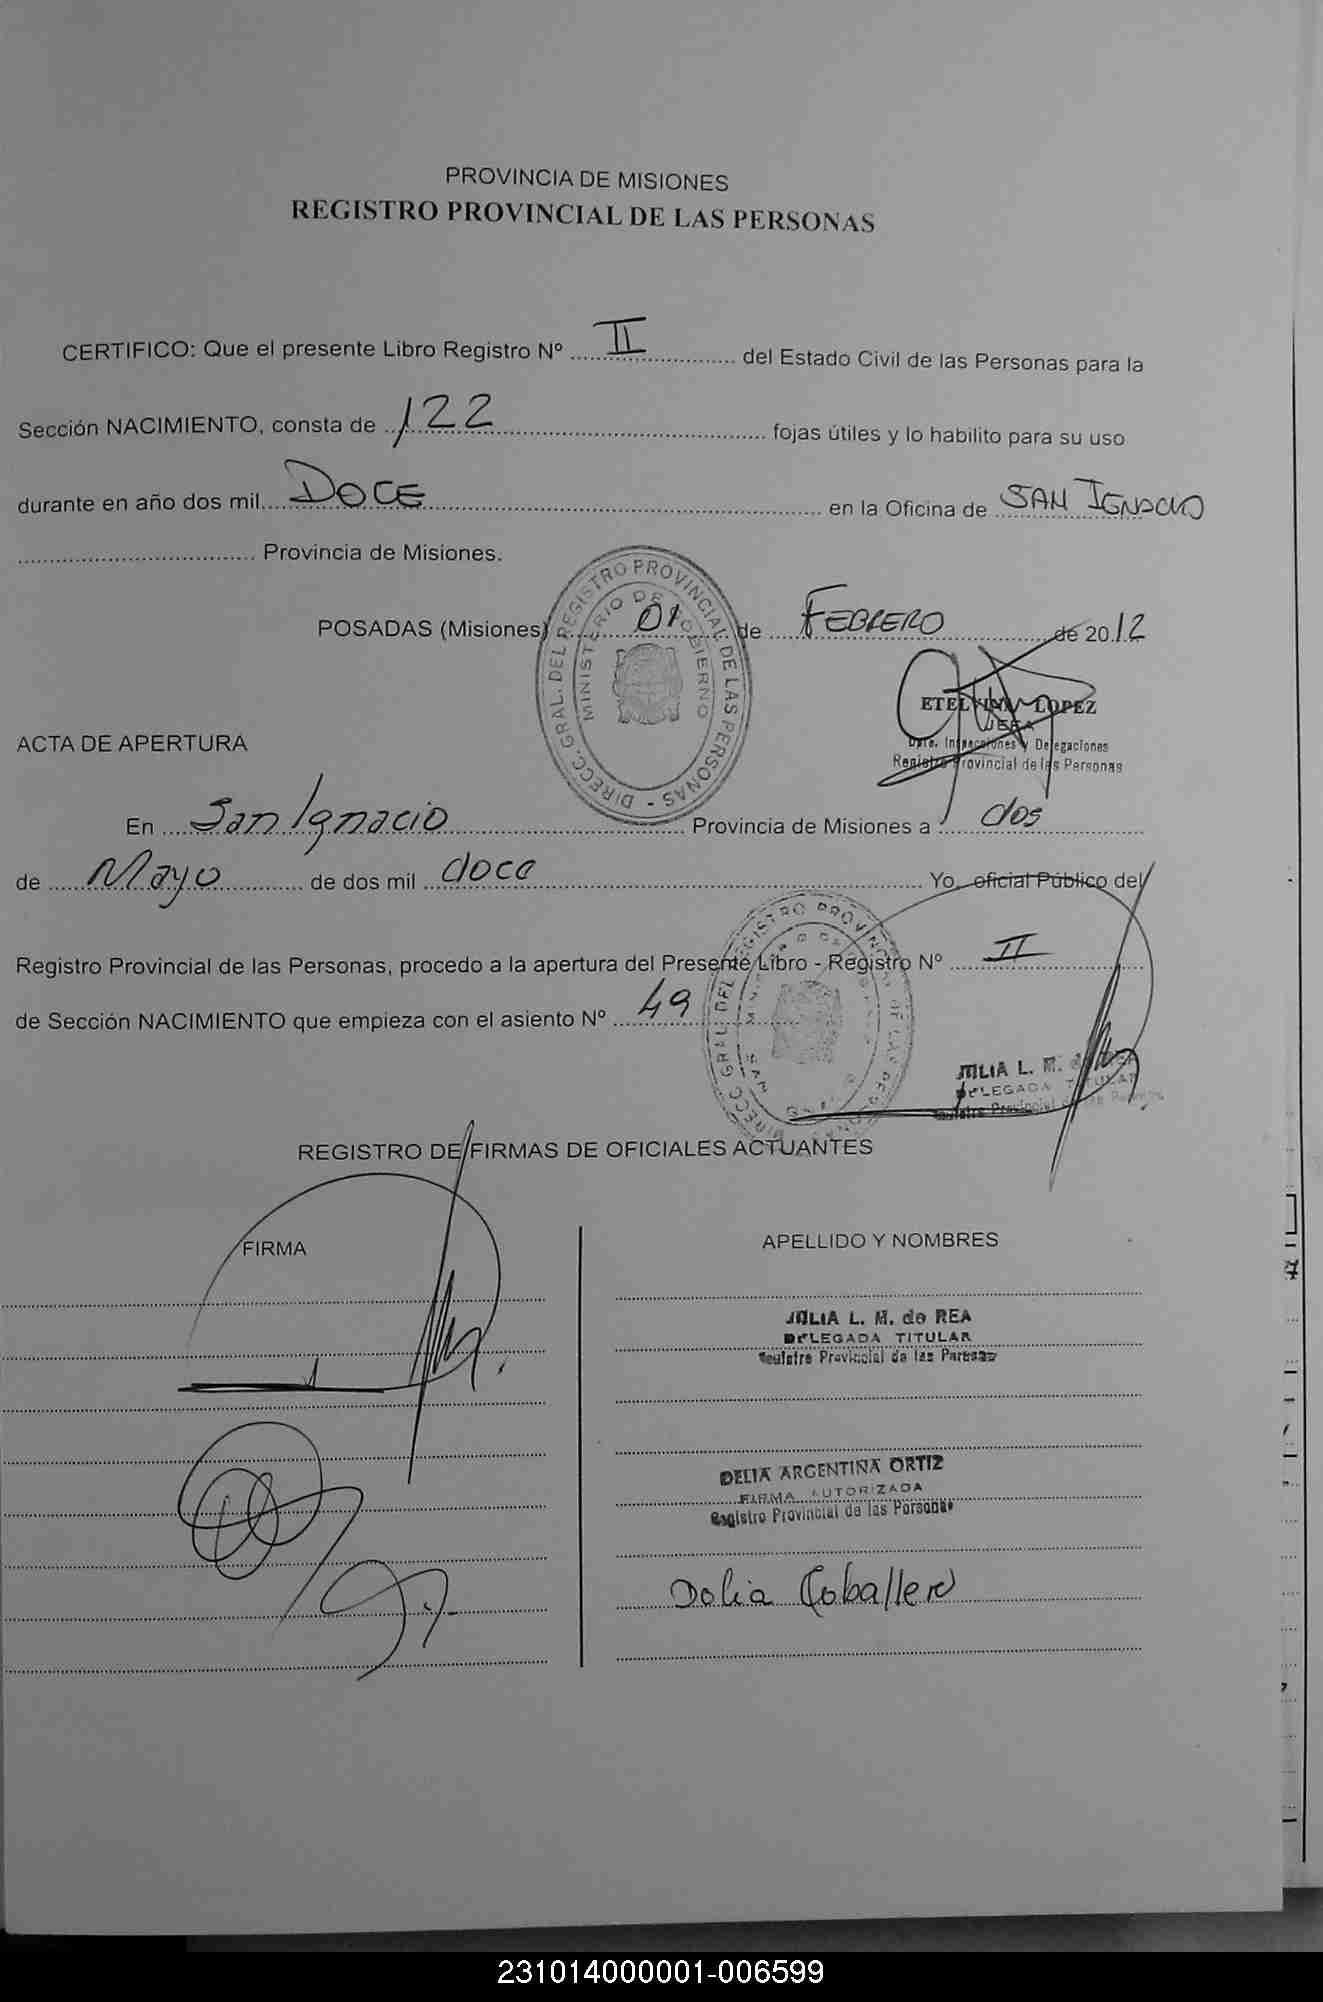 PROVINCIA DE MISIONES
REGISTRO PROVINCIAL DE LAS PERSONAS
CERTIFICO: Que el presente Libro Registro Nº II del Estado Civil de las Personas para la
Sección NACIMIENTO, consta de 122 fojas útiles y lo habilito para su uso
durante en año dos mil DOCE en la Oficina de SAN IGNACIO
Provincia de Misiones.
DIRECC. GRAL. DEL REGISTRO PROVINCIAL DE LAS PERSONAS
MINISTERIO DE GOBIERNO
POSADAS (Misiones) 01 de FEBRERO de 2012
ETELVINA LOPEZ
JEFA
Dpto. Inspecciones y Delegaciones
Registro Provincial de las Personas
ACTA DE APERTURA
En San Ignacio Provincia de Misiones a dos
de Mayo de dos mil doce Yo, oficial Público del
Registro Provincial de las Personas, procedo a la apertura del Presente Libro - Registro Nº II
de Sección NACIMIENTO que empieza con el asiento Nº 49
DIRECC. GRAL. DEL REGISTRO PROVINCIAL DE LAS PERSONAS
JULIA L. M. de
DELEGADA TITULAR
Registro Provincial de las Personas
REGISTRO DE FIRMAS DE OFICIALES ACTUANTES
FIRMA
APELLIDO Y NOMBRES
JULIA L. M. de REA
DELEGADA TITULAR
Registro Provincial de las Personas
DELIA ARGENTINA ORTIZ
FIRMA AUTORIZADA
Registro Provincial de las Personas
Delia Caballero
231014000001-006599